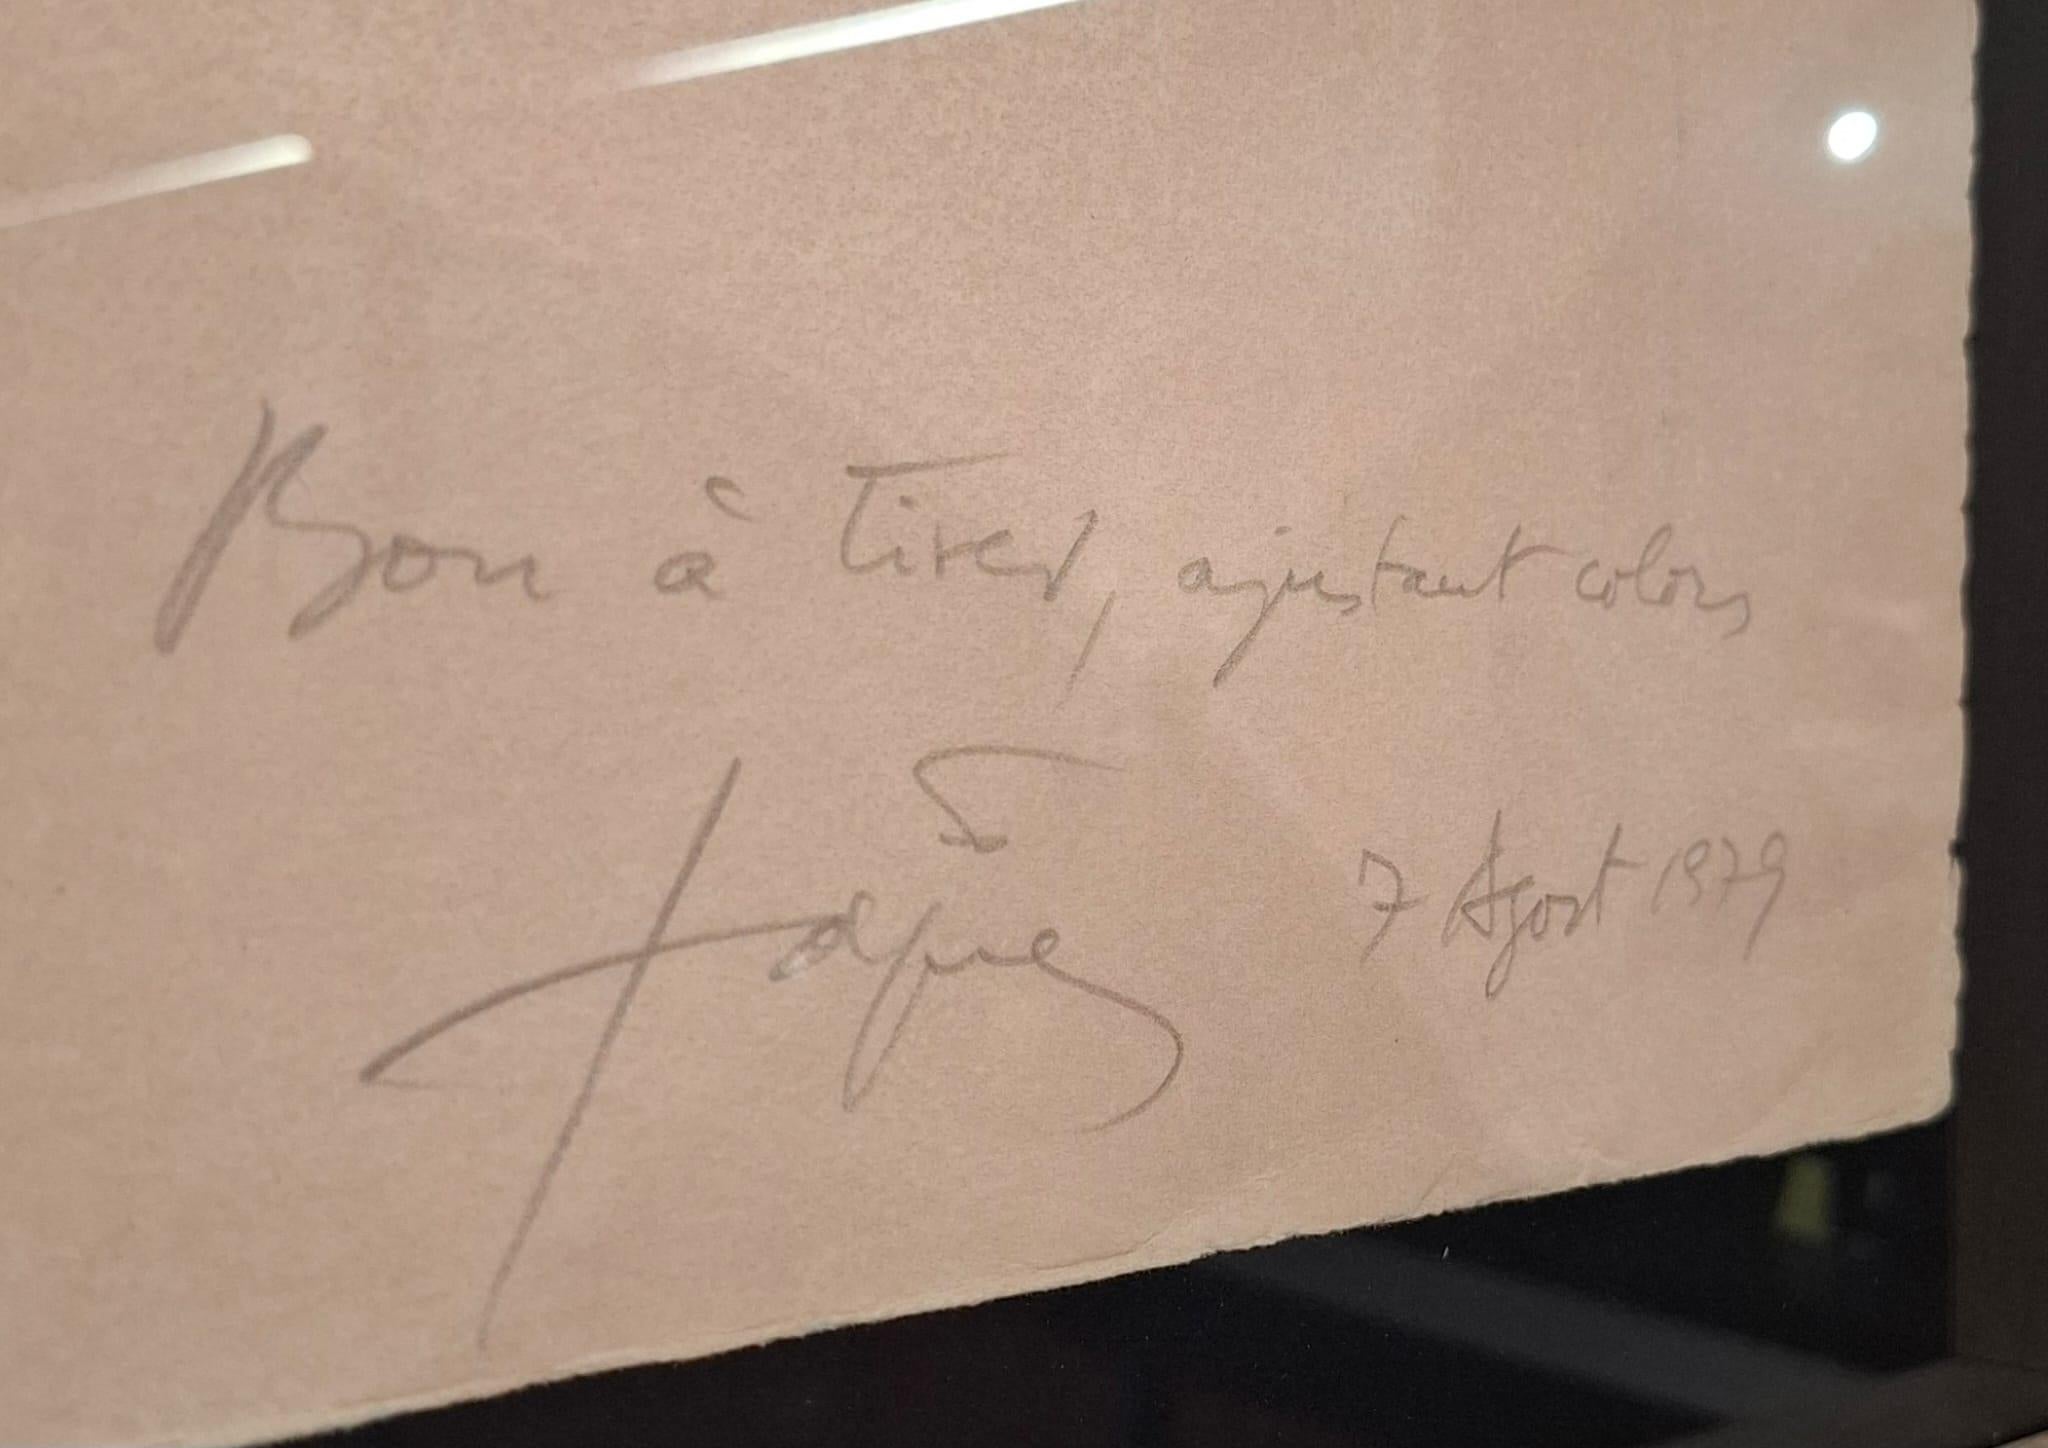 Bon à tirer, ajustant colors
Tàpies
7 Agost 1979